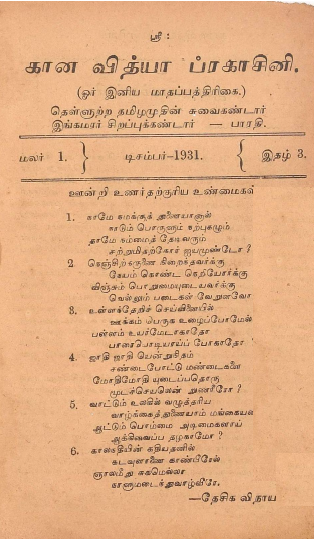 ஸ்ரீ :
கான வித்யா ப்ரகாசினி.
(ஓர் இனிய மாதப்பத்திரிகை.)
தெள்ளுற்ற தமிழமுதின் சுவைகண்டார்
இங்கமரர் சிறப்புக்கண்டார் — பாரதி.
மலர் 1. } டிசம்பர்-1931. { இதழ் 3.
ஊன்றி உணர்தற்குரிய உண்மைகள்
1. நாமே நமக்குத் துணையானால்
நாடும் பொருளும் நற்புகழும்
தாமே நம்மைத் தேடிவரும்
சற்றுமிதற்கோர் ஐயமுண்டோ?
2 நெஞ்சிற்கருணை நிறைந்தவர்க்கு
நேயம் கொண்ட நெறியோர்க்கு
விஞ்சும் பொறுமையுடையவர்க்கு
வெல்லும் படைகள் வேறுளவோ
3. உள்ளந்தேறிச் செய்வினையில்
ஊக்கம் பெருக உழைப்போமேல்
பள்ளம் உயர்மேடாகாதோ
பாறைபொடியாய்ப் போகாதோ
4. ஜாதி ஜாதி யென்றுநிதம்
சண்டைபோட்டு மண்டைகளை
மோதிமோதி யுடைப்பதொரு
மூடச்செயலென் றுணரீரோ?
5. வாட்டும் உலகில் வழுத்தரிய
வாழ்க்கைத்துணையாம் மங்கையரை
ஆட்டும் பொம்மை அடிமைகளாய்
ஆக்கிவைப்ப தழகாமோ?
6. காலநதியின் கதியதனில்
கடவுளாணை காண்பிரேல்
ஞாலமீது சுகமெல்லா
நாளுமடைந்துவாழ்வீரே.
—தேசிக விநாய